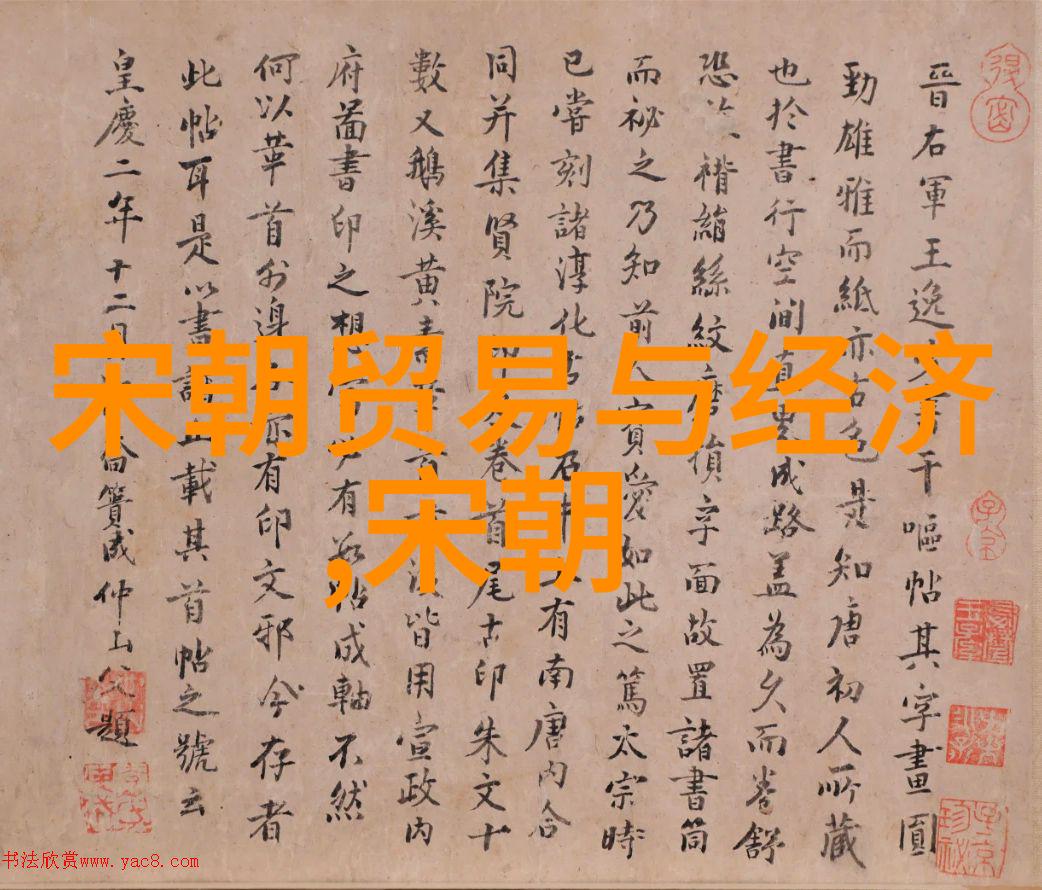 晉右軍王逸干嘔帖其字畫圓
勁雄雅而紙亦古色是知唐初人所藏
也於書行空間成路蓋為久而卷舒
恐褙絹絲紋磨損字面故置諸書筒
而祕之乃知前人寶愛如此之篤太宗時
已嘗刻諸淳化有南唐內合
同并集賢院卷首尾古印朱文十
數又鵝溪黃皆用宣政內
府啚書印之想有帖成軸不然
何以華首外邊亦有印文邪今存者
此帖耳是以書載其首帖之號云
皇慶二年十二月贊成仲山父題
宋朝贸易与经济
,宋朝
书法欣赏www.yac8.com